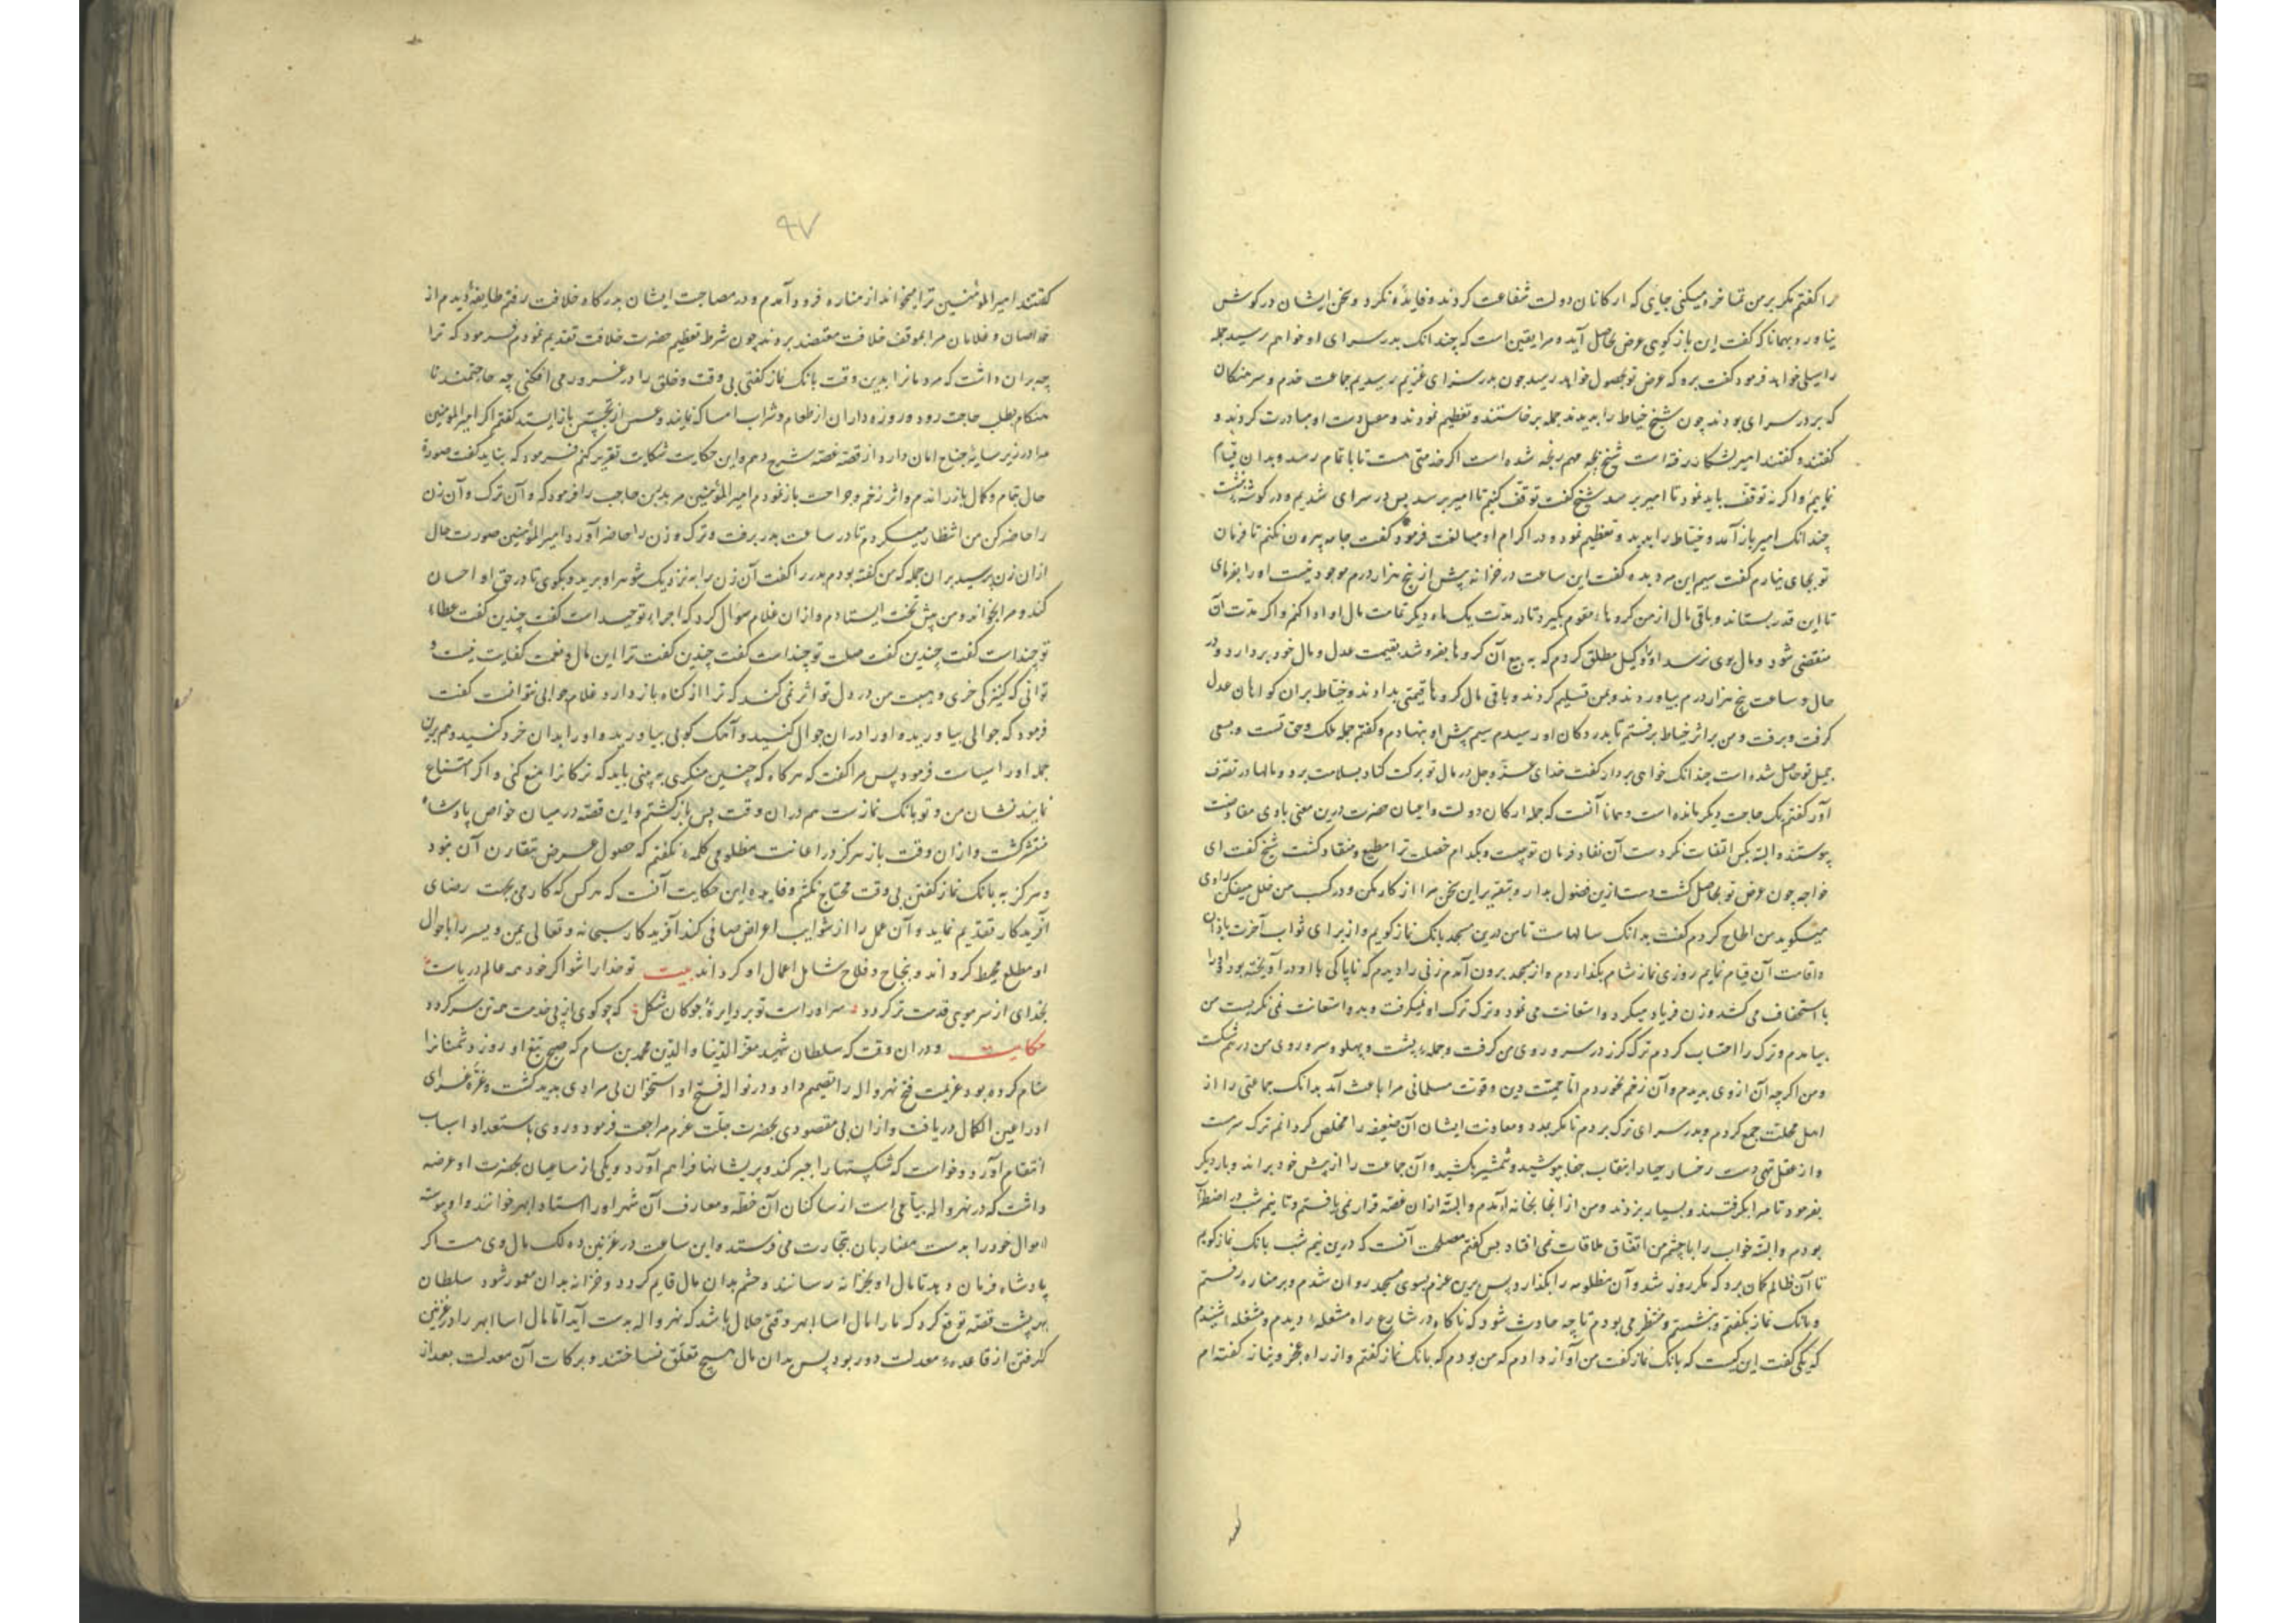 مرا گفتم مگر بر من تماخره میکنی جایی که ارکانان دولت شفاعت کردند و فایده نکرد و سخن ایشان در گوش
نیاورد و بهمانا که گفت این بازگوی عرض بحاصل آید و مرا یقین است که چندانک بدر سرای او خواهم رسید جمله
را سیلی خواهد فرمود گفت برو که عرض تو بحصول خواهد رسید چون بدر سرای غریم رسیدیم جماعت خدم و سرهنگان
که بر در سرای بودند چون شیخ خیاط را بدیدند جمله برخاستند و تعظیم نمودند و بدست او مبادرت کردند و
گفتند و گفتند امیر بشکار رفته است شیخ بچه مهم رنجه شده است اگر خدمتی هست تا باتمام رسد و بدان قیام
نماییم و اگر نه توقف باید نمود تا امیر برسد شیخ گفت توقف کنیم تا امیر برسد پس در سرای شدیم و در گوشه بنشست
چندانک امیر باز آمد و خیاط را بدید و تعظیم نمود و در اکرام او مبالغت فرمود گفت جامه بیرون نکنم تا فرمان
تو بجای نیارم گفت سیم این مرد بده گفت این ساعت در خزانه بیش از پنج هزار درم موجود نیست او را بفرمای
تا این قدر بستاند و باقی مال از من گروها مقوم بگیرد تا در مدت یک ماه دیگر تمامت مال او ادا کنم و اگر مدت آن
منقضی شود و مال بوی نرسد او را وکیل مطلق کردم که به بیع آن گروها بفروشد بقیمت عدل و مال خود بردارد و در
حال و ساعت پنج هزار درم بیاوردند و بمن تسلیم کردند و باقی مال گروها قیمتی بدادند و خیاط بران گواهان عدل
گرفت و برفت و من بر اثر خیاط برفتم تا بدر دکان او رسیدم سیم پیش او بنهادم و گفتم جمله ملک و حق تست و بسعی
جمیل تو حاصل شده است چندانک خواهی بردار گفت خدای عز و جل در مال تو برکت کناد بسلامت برو و مالها در تصرف
آور گفتم یک حاجت دیگر مانده است و همانا آنست که جمله ارکان دولت و اعیان حضرت درین معنی باوی مفاوضت
پیوستند و البته بکس التفات نکردست آن نفاذ فرمان تو چیست و بکدام خصلت ترا مطیع و منقاد گشت شیخ گفت ای
خواجه چون عرض تو بحاصل گشت دست ازین فضول بدار و بتقریر این سخن مرا از کار مکن و در کسب من خلل میفکن راوی
میگوید من الحاح کردم گفت بدانک سالهاست تا من درین مسجد بانگ نماز گویم و از برای ثواب آخرت باذان
و اقامت آن قیام نمایم روزی نماز شام بگذاردم و از مسجد برون آمدم زنی را دیدم که ناپاکی با او در آویخته بود او را
باستخفاف می کشد و زن فریاد میکرد و استعانت می نمود و ترک ترک او نمیگرفت و بدو استعانت نمی نگریست من
بیامدم و ترک را احتساب کردم ترک گرز در سر و روی من گرفت و جمله پشت و پهلو و سر و روی من در هم شکست
و من اگرچه آن از وی بدیدم و آن زخم بخوردم اما حمیت دین و قوت مسلمانی مرا باعث آمد بدانک جماعتی را از
اهل محلت جمع کردم و بدر سرای ترک بردم تا مگر بمدد و معاونت ایشان آن ضعیفه را مخلص گردانم ترک سرمست
و از عقل تهی دست رخسار حیا را بنقاب جفا بپوشید و شمشیر بکشید و آن جماعت را از پیش خود براند و بار دیگر
بفرمود تا مرا بگرفتند و بسیار بزدند و من از آنجا بخانه آمدم و البته ازان غصه قرار نمی یافتم و تا نیم شب در اضطراب
بودم و البته خواب را با چشم من اتفاق ملاقات نمی افتاد پس گفتم مصلحت آنست که درین نیم شب بانگ نماز گویم
تا آن ظالم گمان برد که مگر روز شد و آن مظلومه را بگذارد پس برین عزم بسوی مسجد روان شدم و بر مناره رفتم
و بانگ نماز بگفتم و بنشستم و منتظر می بودم تا چه حادث شود که ناگاه در شارع راه مشعله دیدم و مشغله شنیدم
که یکی گفت این کیست که بانگ نماز گفت من آواز دادم که من بودم که بانگ نماز گفتم و از راه عجز و نیاز گفته ام
۹۷
گفتند امیرالمؤمنین ترا میخواند از مناره فرود آمدم و در مصاحبت ایشان بدرگاه خلافت رفتم طایفه دیدم از
خواصان و غلامان مرا بموقف خلافت معتضد بردند چون شرط تعظیم حضرت خلافت تقدیم نمودم فرمود که ترا
چه بران داشت که مردمان را بدین وقت بانگ نماز گفتی بی وقت و خلق را در غرور می افکنی چه حاجتمند نا
هنگام بطلب حاجت رود و روزه داران از طعام و شراب امساک نمایند و عسس از تجسس باز ایستد گفتم اگر امیرالمؤمنین
مرا در زیر سایه جناح امان دارد از قصه غصه شرح دهم و این حکایت شکایت تقریر کنم فرمود که بباید گفت صورة
حال بتمام و کمال باز راندم و اثر زخم و جراحت باز نمودم امیرالمؤمنین مر بدین حاجب را فرمود که و آن ترک و آن زن
را حاضر کن من انتظار میکردم تا در ساعت بدر برفت و ترک و زن را حاضر آورد امیرالمؤمنین صورت حال
ازان زن پرسید بران جمله که من گفته بودم بدر را گفت آن زن را به نزدیک شوهر او برید و بگوی تا در حق او احسان
کند و مرا بخواند و من پیش تخت ایستادم و ازان غلام سؤال کرد که اجراء تو چند است گفت چندین گفت عطاء
تو چند است گفت چندین گفت صلت تو چند است گفت چندین گفت ترا این مال و نعمت کفایت نیست و
توانی که کنیزکی خری و هیبت من در دل تو اثر نمی کند که ترا از گناه باز دارد غلام جوابی نتوانست گفت
فرمود که جوالی بیاورید و او را دران جوال کنید و آهنگ کوبی بیاورید و او را بدان خرد کنید و هم بران
جمله او را سیاست فرمود پس مرا گفت که هرگاه که چنین منکری به بینی باید که ترکان را منع کنی و اگر امتناع
نمایند نشان من و تو بانگ نماز است هم دران وقت پس بازگشتم و این قصه در میان خواص پادشاه
منتشر گشت و ازان وقت باز هرگز در اعانت مظلومی کلمه نگفتم که حصول عرض بتقارن آن نبود
و هرگز به بانگ نماز گفتن بی وقت محتاج نگشتم و فایده این حکایت آنست که هر کس که کار می بجهت رضای
آفریدگار تقدیم نماید و آن عمل را از شوایب اعراض صافی کند آفریدگار سبحانه و تعالی یمن و یسر را باحوال
او مطلع محیط گرداند و بنجاح و فلاح شامل اعمال او گرداند بیت تو خدا را شو اگر خود همه عالم دریاست
بخدای از سر مویی قدمت تر گردد سر او راست تو بر دایره چوگان شکل که چو گوی از پی خدمت همه تن سر گردد
حکایت و دران وقت که سلطان شهید معز الدنیا و الدین محمد بن سام که صبح تیغ او روز دشمنان را
شام کرده بود عزیمت فتح نهرواله را تصمیم داد و در نواله فتح او استخوان بی مرادی پدید گشت و غره غرای
او را عین الکمال دریافت و ازان بی مقصودی بحضرت جلت عزم مراجعت فرمود و روی باستعداد اسباب
انتقام آورد و خواست که شکستها را جبر کند و پریشانها فراهم آورد و یکی از ساعیان بحضرت او عرضه
داشت که در نهرواله بیاعی است از ساکنان آن خطه و معارف آن شهر او را استاد ابهر خوانند و او پیوسته
اموال خود را بدست مضاربان بتجارت می فرستد و این ساعت در غزنین ده لک مال وی هست اگر
پادشاه فرمان دهد تا مال او بخزانه رسانند و حشم بدان مال قایم گردد و خزانه بدان معمور شود سلطان
بر پشت قصه توقیع کرد که ما را مال اسا ابهر وقتی حلال باشد که نهرواله بدست آید اما مال اسا ابهر را در غزنین
گرفتن از قاعده معدلت دور بود پس بدان مال هیچ تعلق نساختند و برکات آن معدلت بعد از